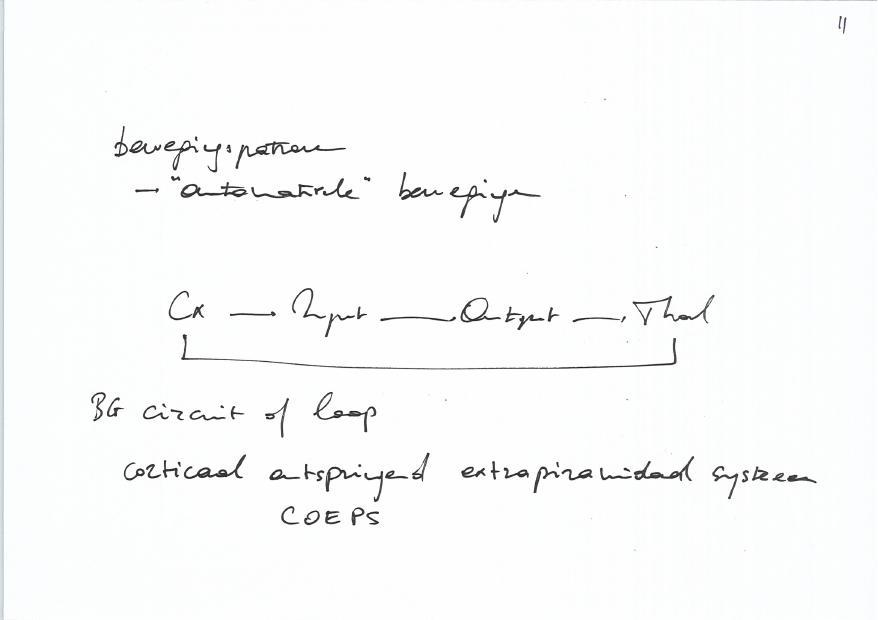 11
bewegingspatronen
→ "automatische" bewegingen
Cx → Input → Output → Thal
BG circuit of loop
corticaal ontspringend extrapiramidaal systeem
COEPS